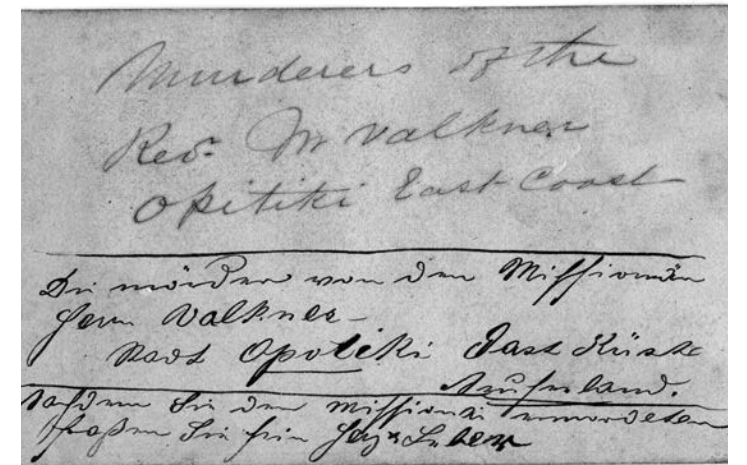 Murderers of the
Rev. Mr Valkner
Opitiki East Coast
Di mörder von den Missionär
Herrn Valkner
Stadt Opotiki East Küste
Neuseeland.
Nachdem Sie den Missionär ermordeten
fraßen Sie sein Herz & Leber